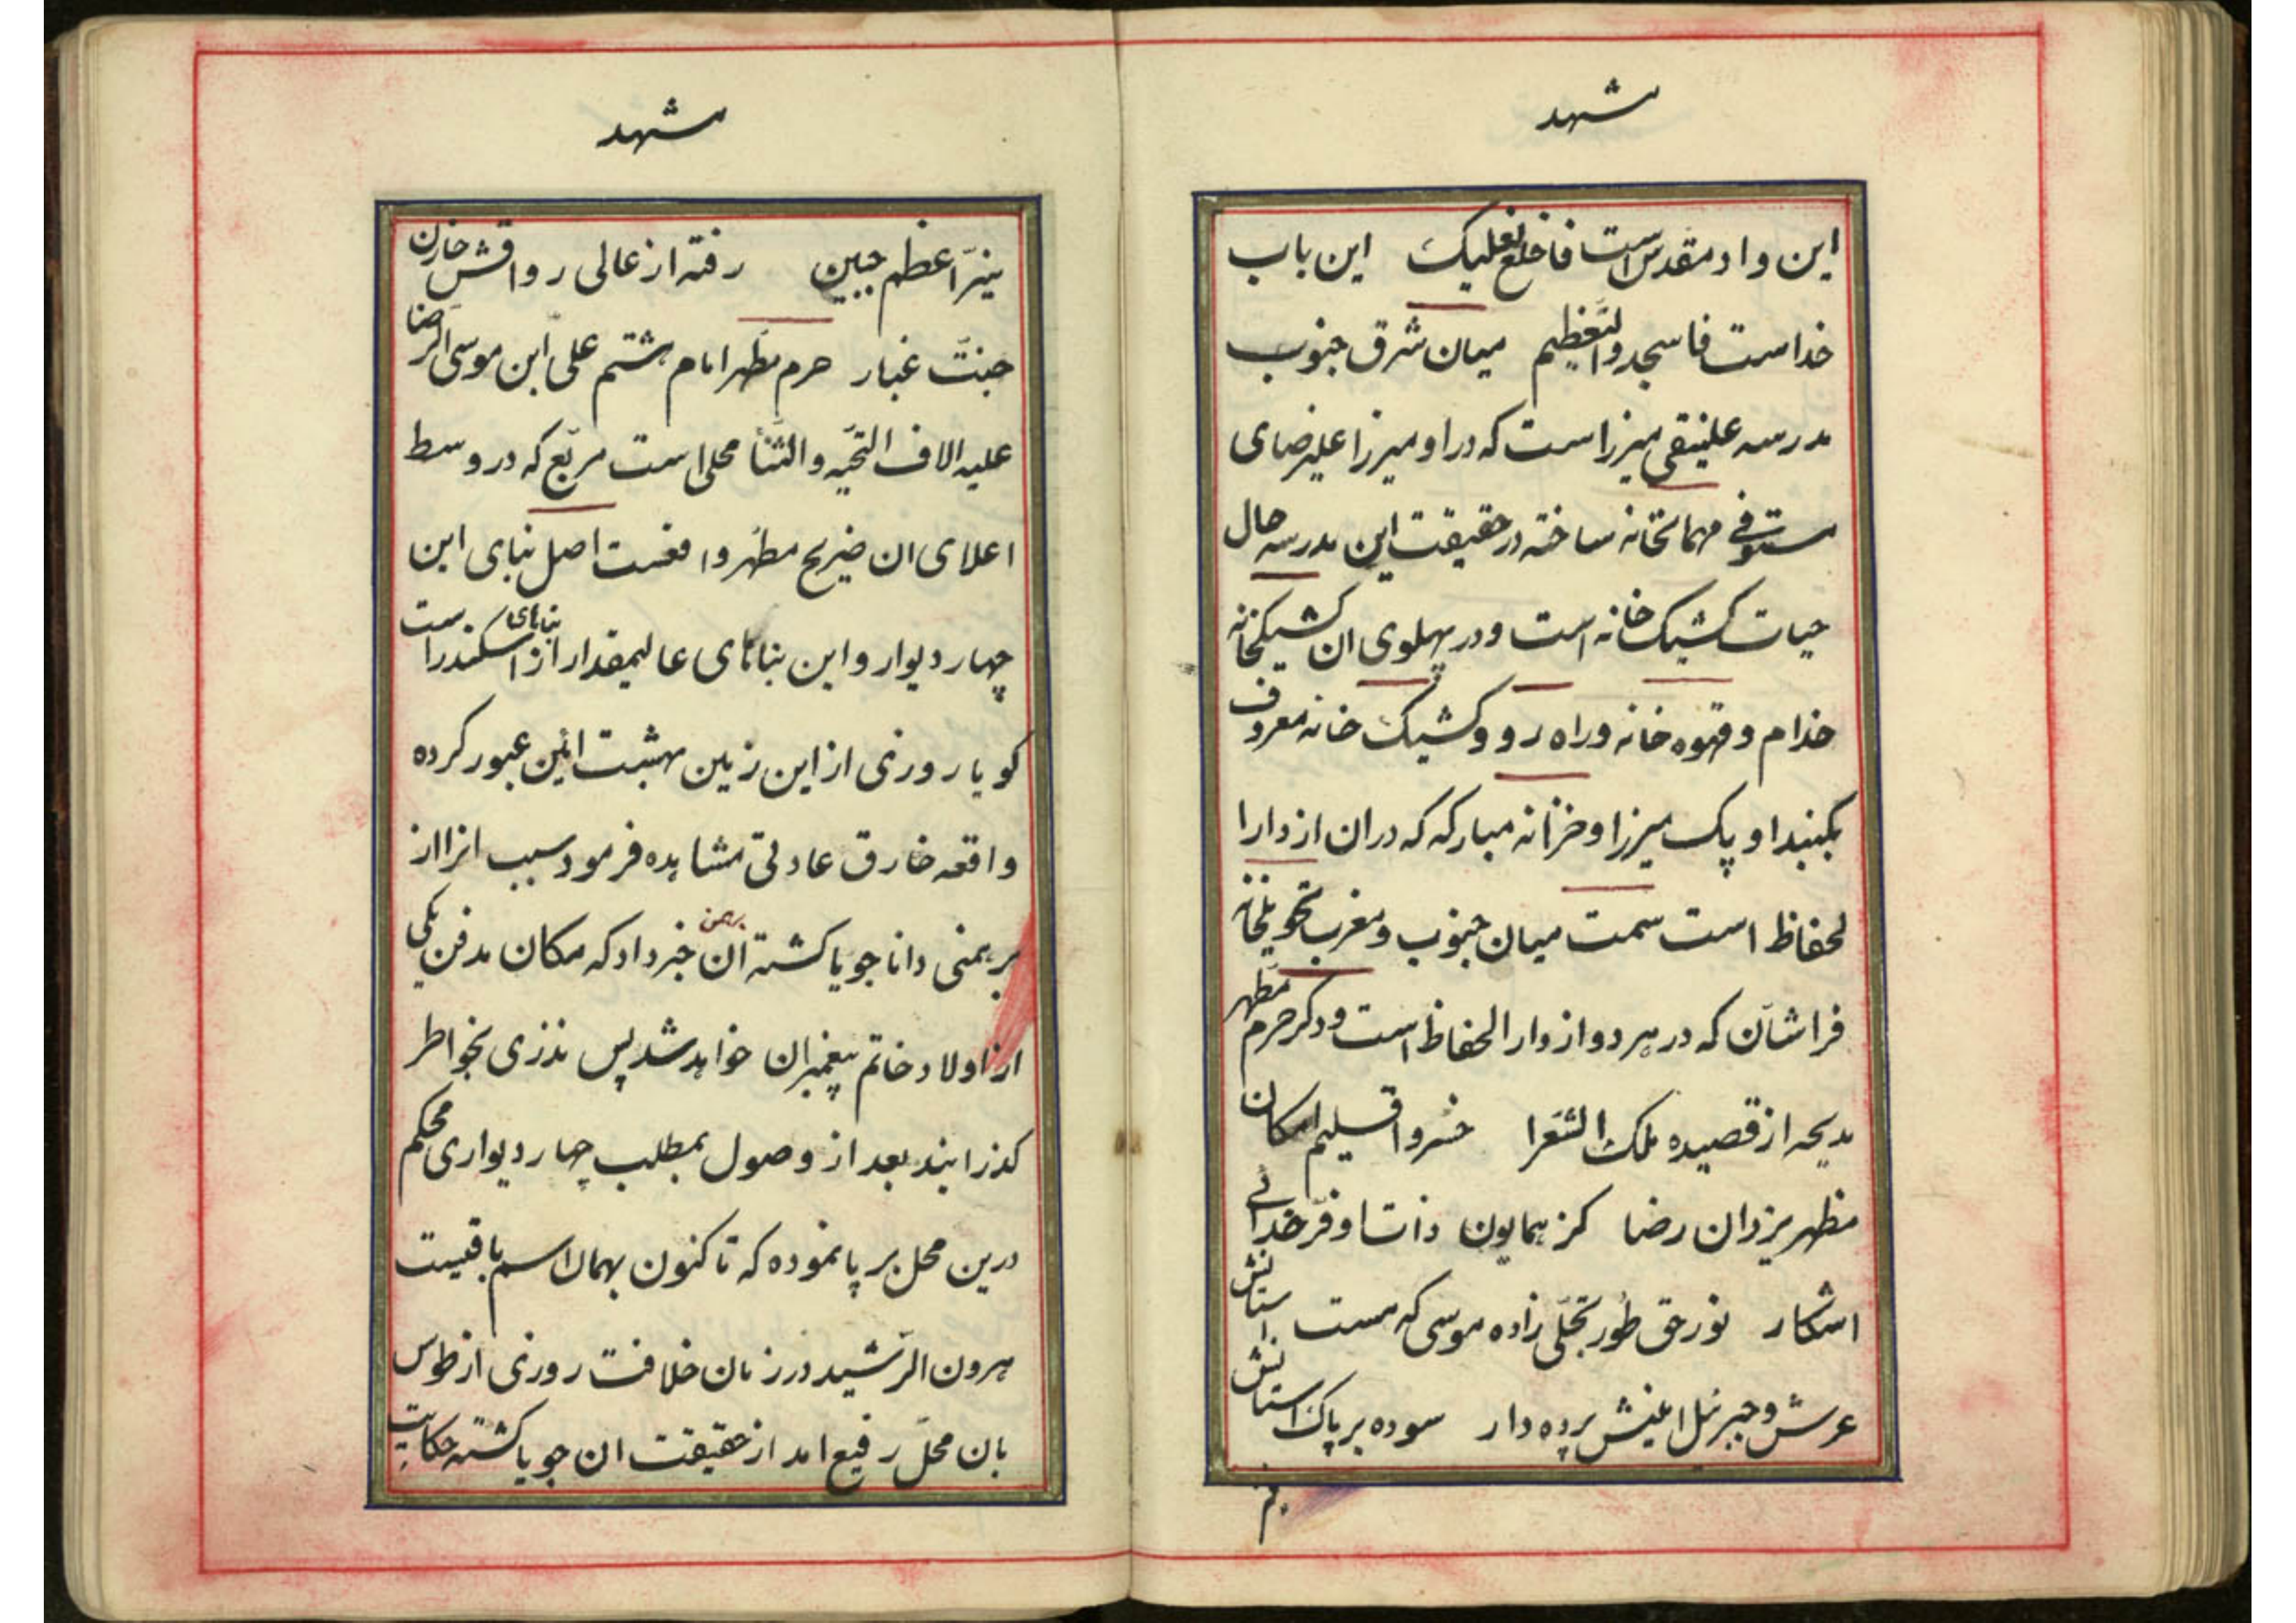 مشهد
این واد مقدس است فاخلع نعلیک این باب
خداست فاسجد والتعظیم میان شرق جنوب
مدرسه علینقی میرزاست که در او میرزا علیرضای
مستوفی مهمانخانه ساخته در حقیقت این مدرسه حال
حیات کشیک خانه است و در پهلوی ان کشیکخانه
خدام و قهوه خانه و راه رو و کشیک خانه معروف
بکنبد اوپک میرزا و خزانه مبارکه که در ان از دارا
لحفاظ است سمت میان جنوب و مغرب تحویلخانه
فراشان که در هر دو از دار الحفاظ است و ذکر حرم مطهر
مدیحه از قصیده ملک الشعرا خسرو اقلیم امکان
مظهر یزدان رضا کز همایون ذات او فر خدائی
اشکار نور حق طور تجلی زاده موسی که هست استانش
عرش و جبرئیل امینش پرده دار سوده بر پاک استانش
نیر
مشهد
نیر اعظم جبین رفته از عالی رواقش خازن
جنت غبار حرم مطهر امام هشتم علی ابن موسی الرضا
علیه الاف التحیه والثنا محلی است مربع که در وسط
اعلای ان ضریح مطهر واقعست اصل بنای این
چهار دیوار و این بنای عالیمقدار از بناهای اسکندر است
کویا روزی از این زمین بهشت ائین عبور کرده
واقعه خارق عادتی مشاهده فرمود سبب انرا از
برهمنی دانا جویا کشته ان برهمن خبر داد که مکان مدفن یکی
از اولاد خاتم پیغمبران خواهد شد پس نذری بخواطر
کذرانید بعد از وصول بمطلب چهار دیواری محکم
درین محل بر پا نموده که تا کنون بهمان اسم باقیست
هرون الرشید در زمان خلافت روزی از طوس
بان محل رفیع امد از حقیقت ان جویا کشته حکایت